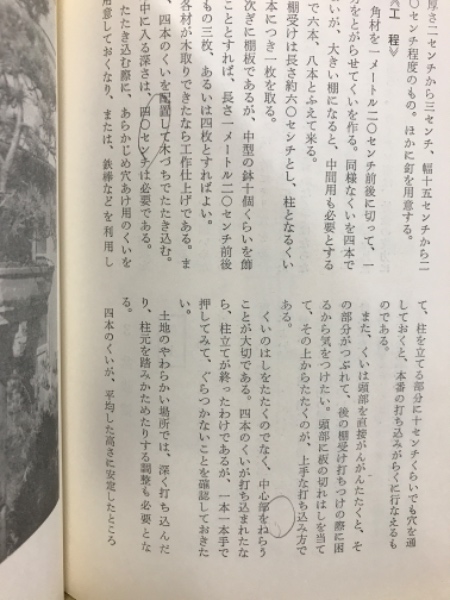 厚さ二センチから三センチ、幅十五センチから二
〇センチ程度のもの。ほかに釘を用意する。
《工　程》
角材を一メートル二〇センチ前後に切って、一
方をとがらせてくいを作る。同様なくいを四本で
いいが、大きい棚になると、中間用も必要で
で六本、八本とふえて来る。
棚受けは長さ約六〇センチとし、柱となるくい
本につき一枚を取る。
次ぎに棚板であるが、中型の鉢十個くらいを飾
ることとすれば、長さ一メートル二〇センチ前後
もの三枚、あるいは四枚とすればよい。
各材が木取りできたなら工作仕上げである。ま
四本のくいを配置して木づちでたたき込む。
中に入る深さは、四〇センチは必要である。
たたき込む際に、あらかじめ穴あけ用のくいを
用意しておくなり、または、鉄棒などを利用し
て、柱を立てる部分に十センチくらいでも穴を通
しておくと、本番の打ち込みがらくに行なえるも
のである。
また、くいは頭部を直接がんがんたたくと、そ
の部分がつぶれて、後の棚受け打ちつけの際に困
るから気をつけたい。頭部に板の切れはしを当て
て、その上からたたくのが、上手な打ち込み方で
ある。
くいのはしをたたくのでなく、中心部をねらう
ことが大切である。四本のくいが打ち込まれたな
ら、柱立てが終ったわけであるが、一本一本手で
押してみて、ぐらつかないことを確認しておきた
い。
土地のやわらかい場所では、深く打ち込んだ
り、柱元を踏みかためたりする調整も必要とな
る。
四本のくいが、平均した高さに安定したところ